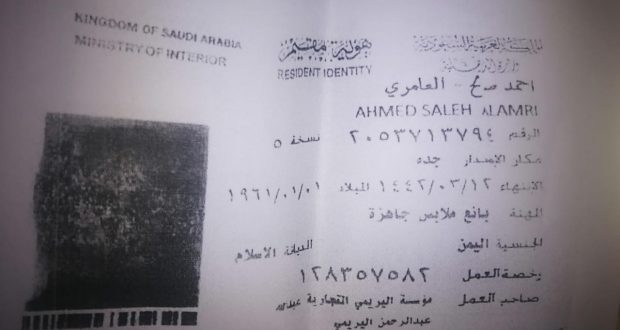 KINGDOM OF SAUDI ARABIA
MINISTRY OF INTERIOR
هوية مقيم
RESIDENT IDENTITY
المملكة العربية السعودية
وزارة الداخلية
احمد صالح - العامري
AHMED SALEH ALAMRI
الرقم ٢٠٥٣٧١٣٧٩٤ نسخة ٥
مكان الإصدار جده
الانتهاء ١٤٤٢/٠٣/١٢ الميلاد ١٩٦١/٠١/٠١
المهنة بائع ملابس جاهزة
الجنسية اليمن الديانة الاسلام
رخصة العمل ١٢٨٣٥٧٥٨٢
صاحب العمل مؤسسة اليريمي التجارية عبدالله
عبدالرحمن اليريمي